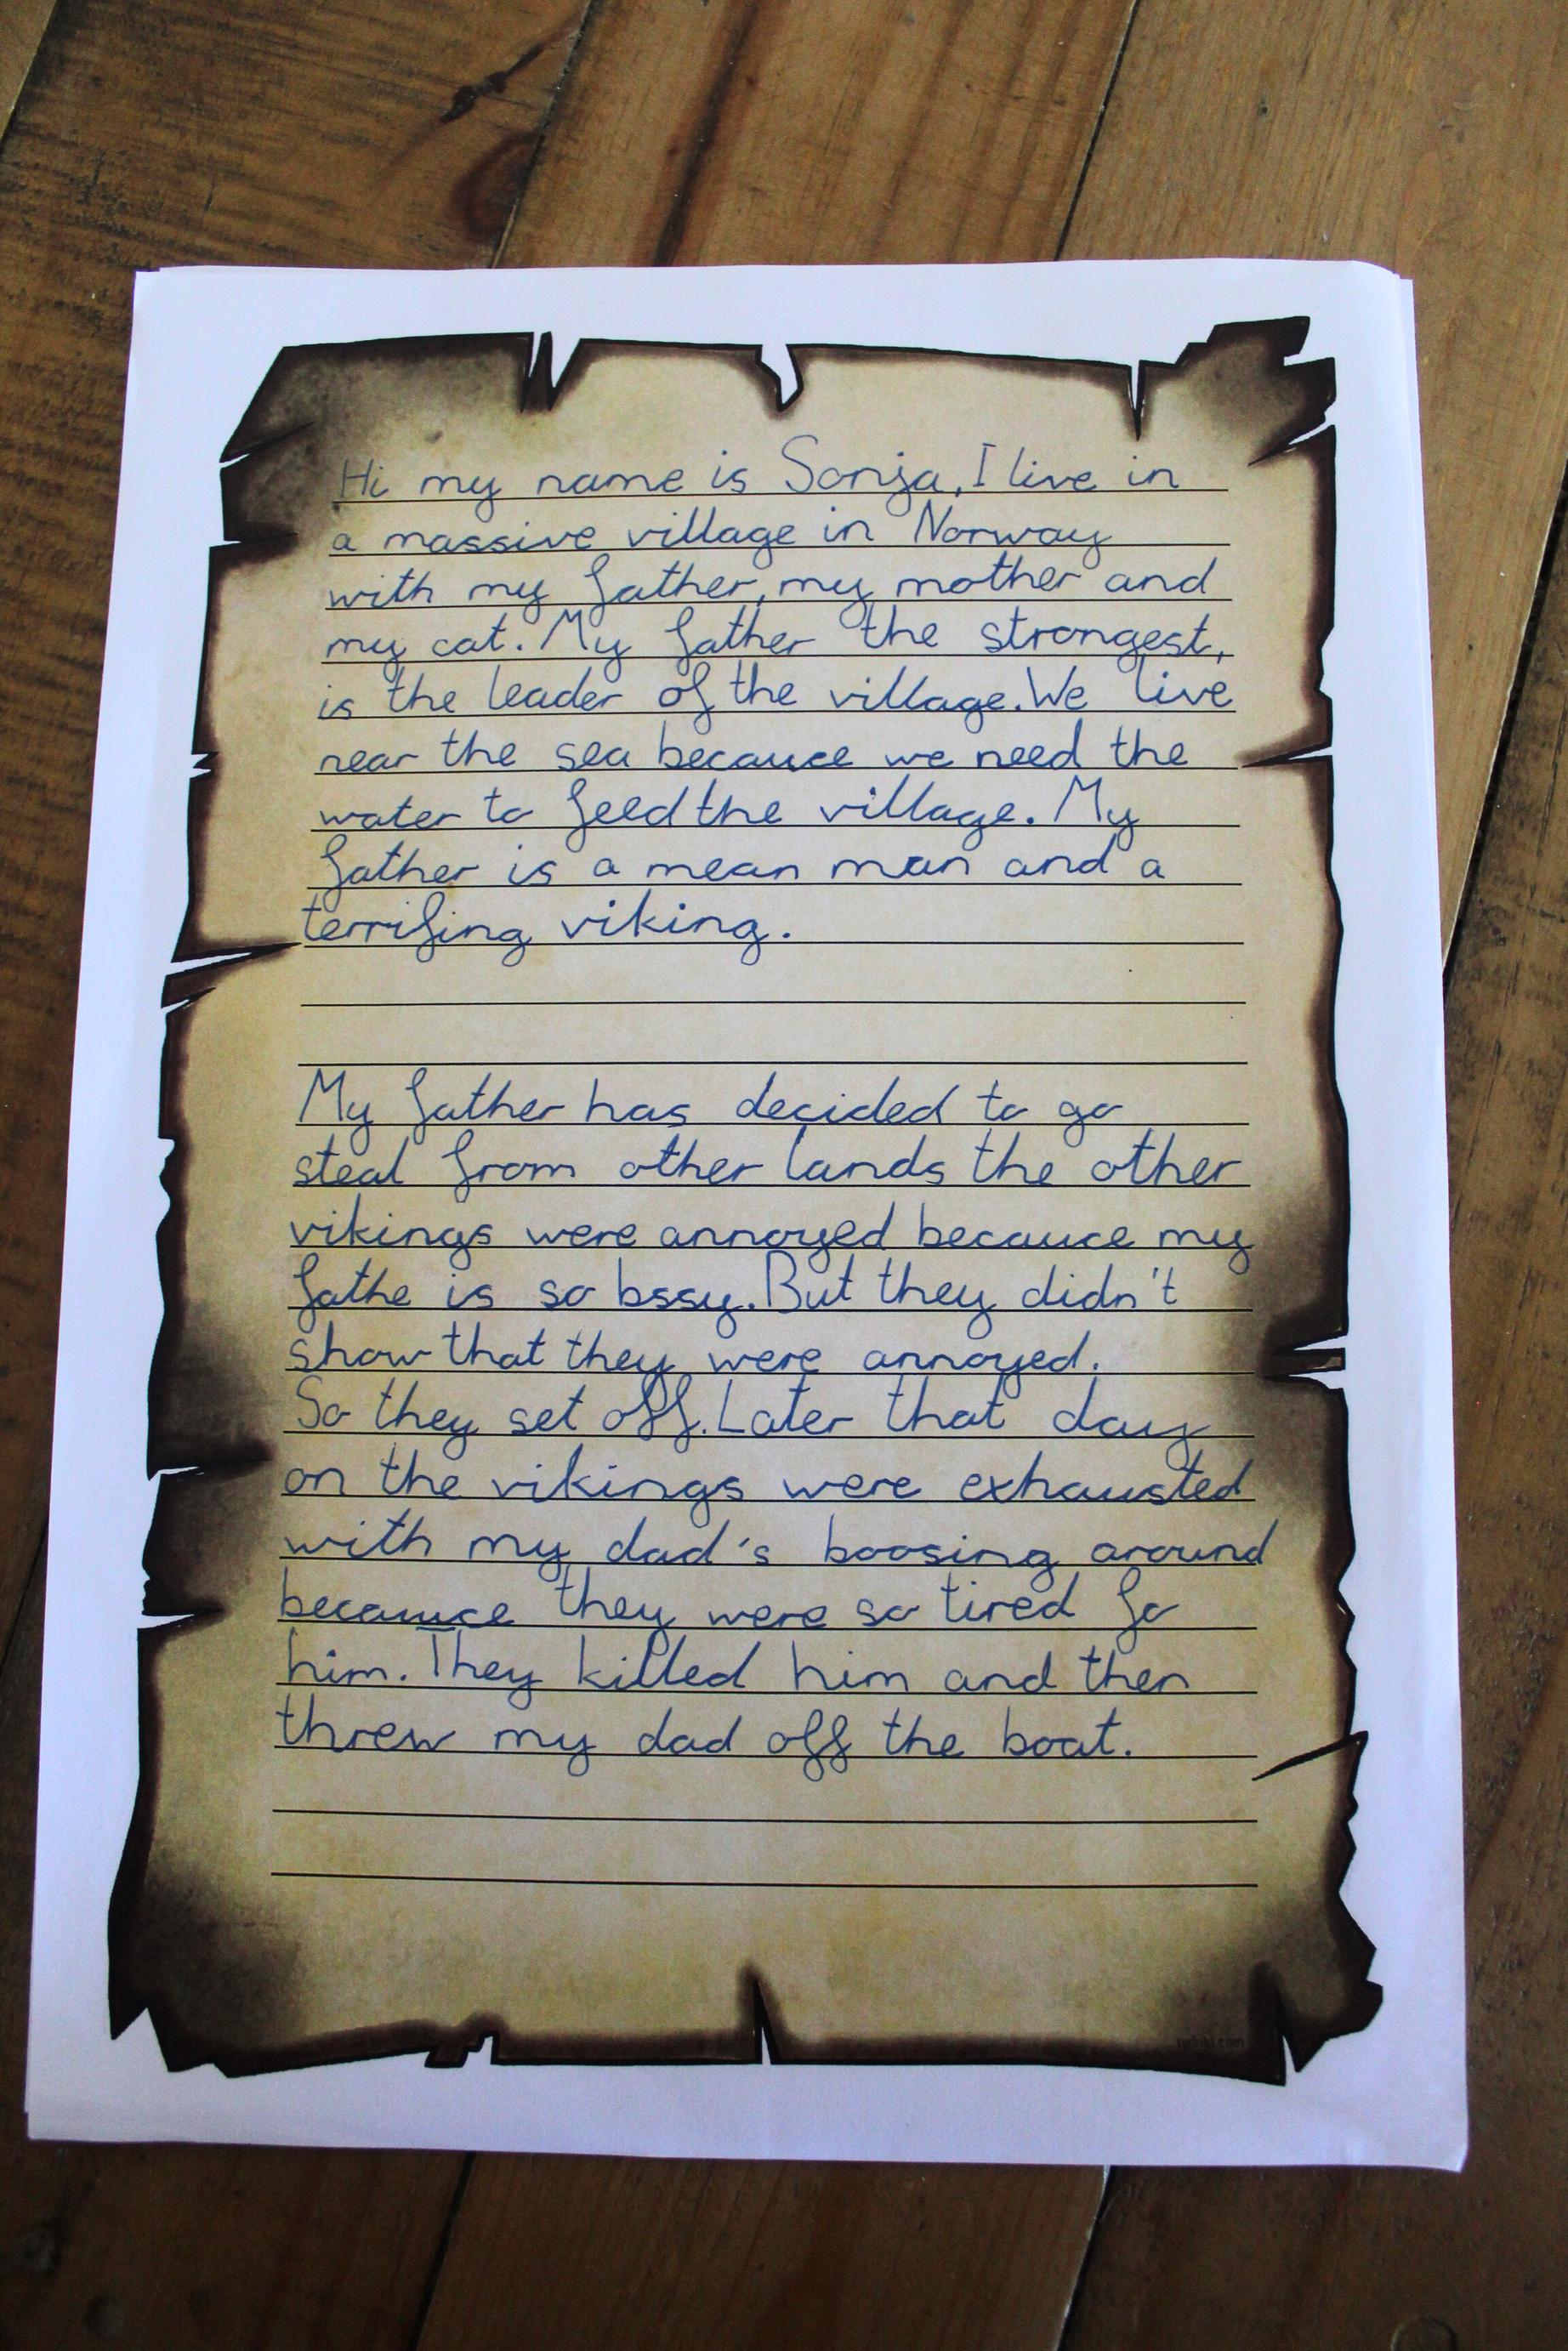 Hi my name is Sonja, I live in
a massive village in Norway
with my father, my mother and
my cat. My father the strongest,
is the leader of the village. We live
near the sea becauce we need the
water to feed the village. My
father is a mean man and a
terrifing viking.
My father has decided to go
steal from other lands the other
vikings were annoyed becauce my
fathe is so bssy. But they didn't
show that they were annoyed.
So they set off. Later that day
on the vikings were exhausted
with my dad's boosing around
becauce they were so tired fo
him. They killed him and then
threw my dad off the boat.